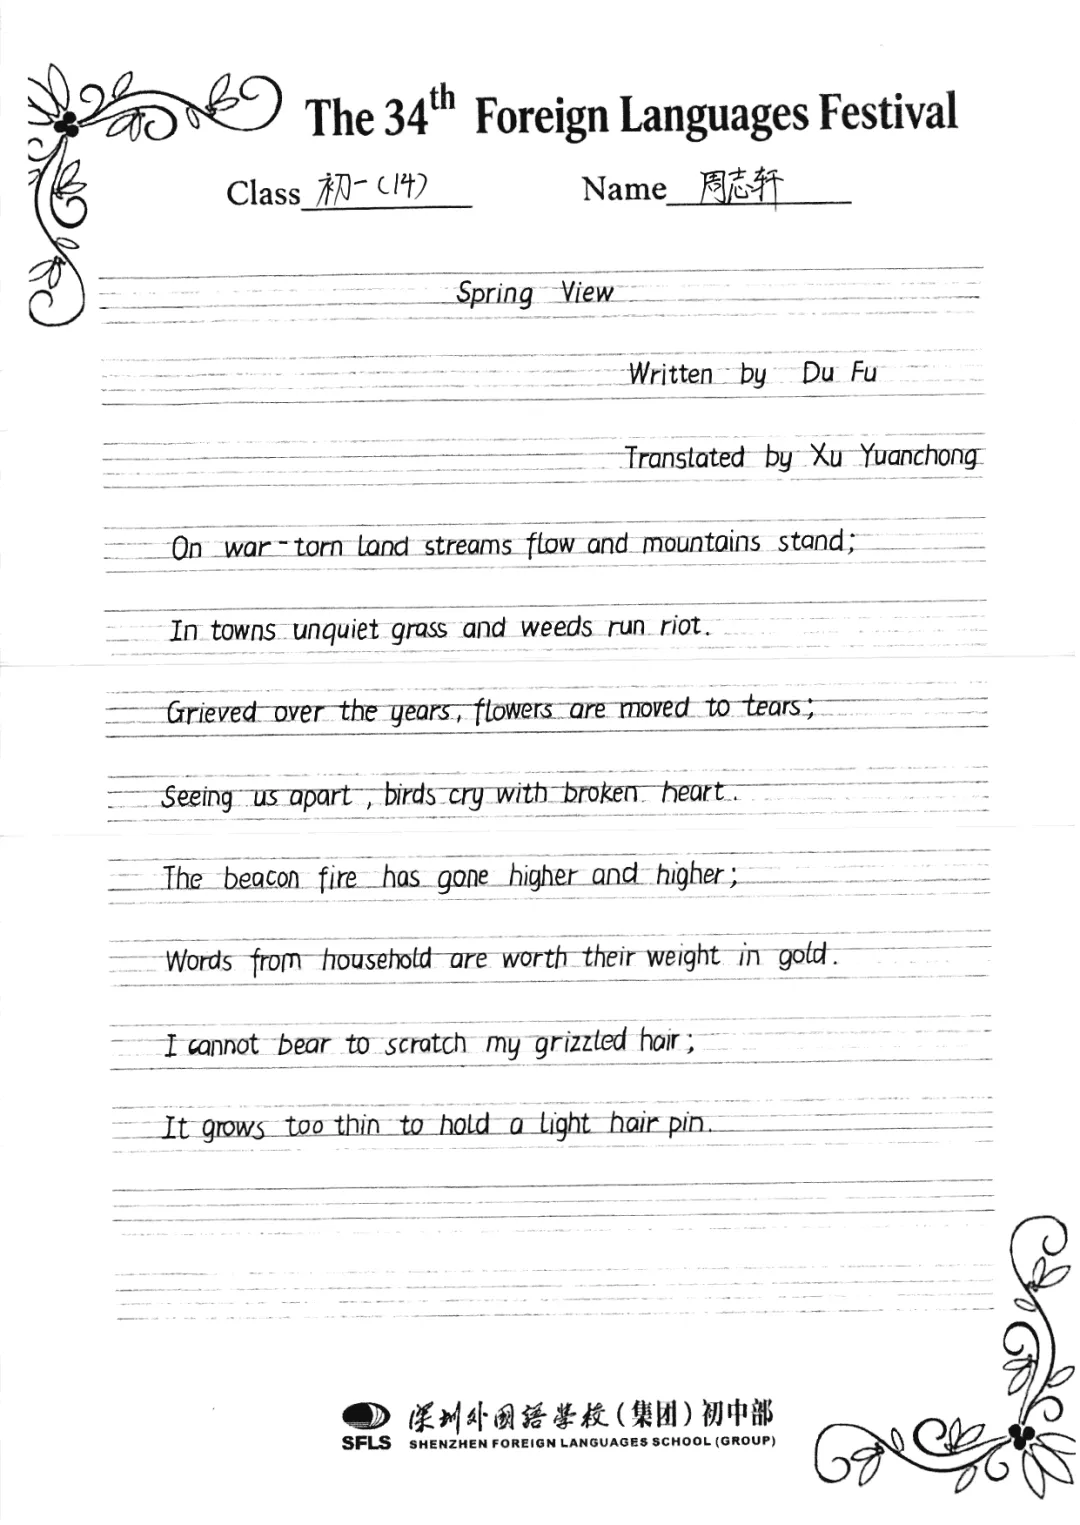 The 34th Foreign Languages Festival
Class 初一(14) Name 周志轩
Spring View
Written by Du Fu
Translated by Xu Yuanchong
On war-torn land streams flow and mountains stand;
In towns unquiet grass and weeds run riot.
Grieved over the years, flowers are moved to tears;
Seeing us apart, birds cry with broken heart.
The beacon fire has gone higher and higher;
Words from household are worth their weight in gold.
I cannot bear to scratch my grizzled hair;
It grows too thin to hold a light hair pin.
深圳外國語學校(集团)初中部
SFLS SHENZHEN FOREIGN LANGUAGES SCHOOL (GROUP)